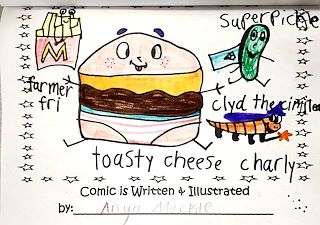 Superpickle
M
farmer
fri
clyd the
toasty cheese charly
Comic is Written & Illustrated
by: Anya Mackle